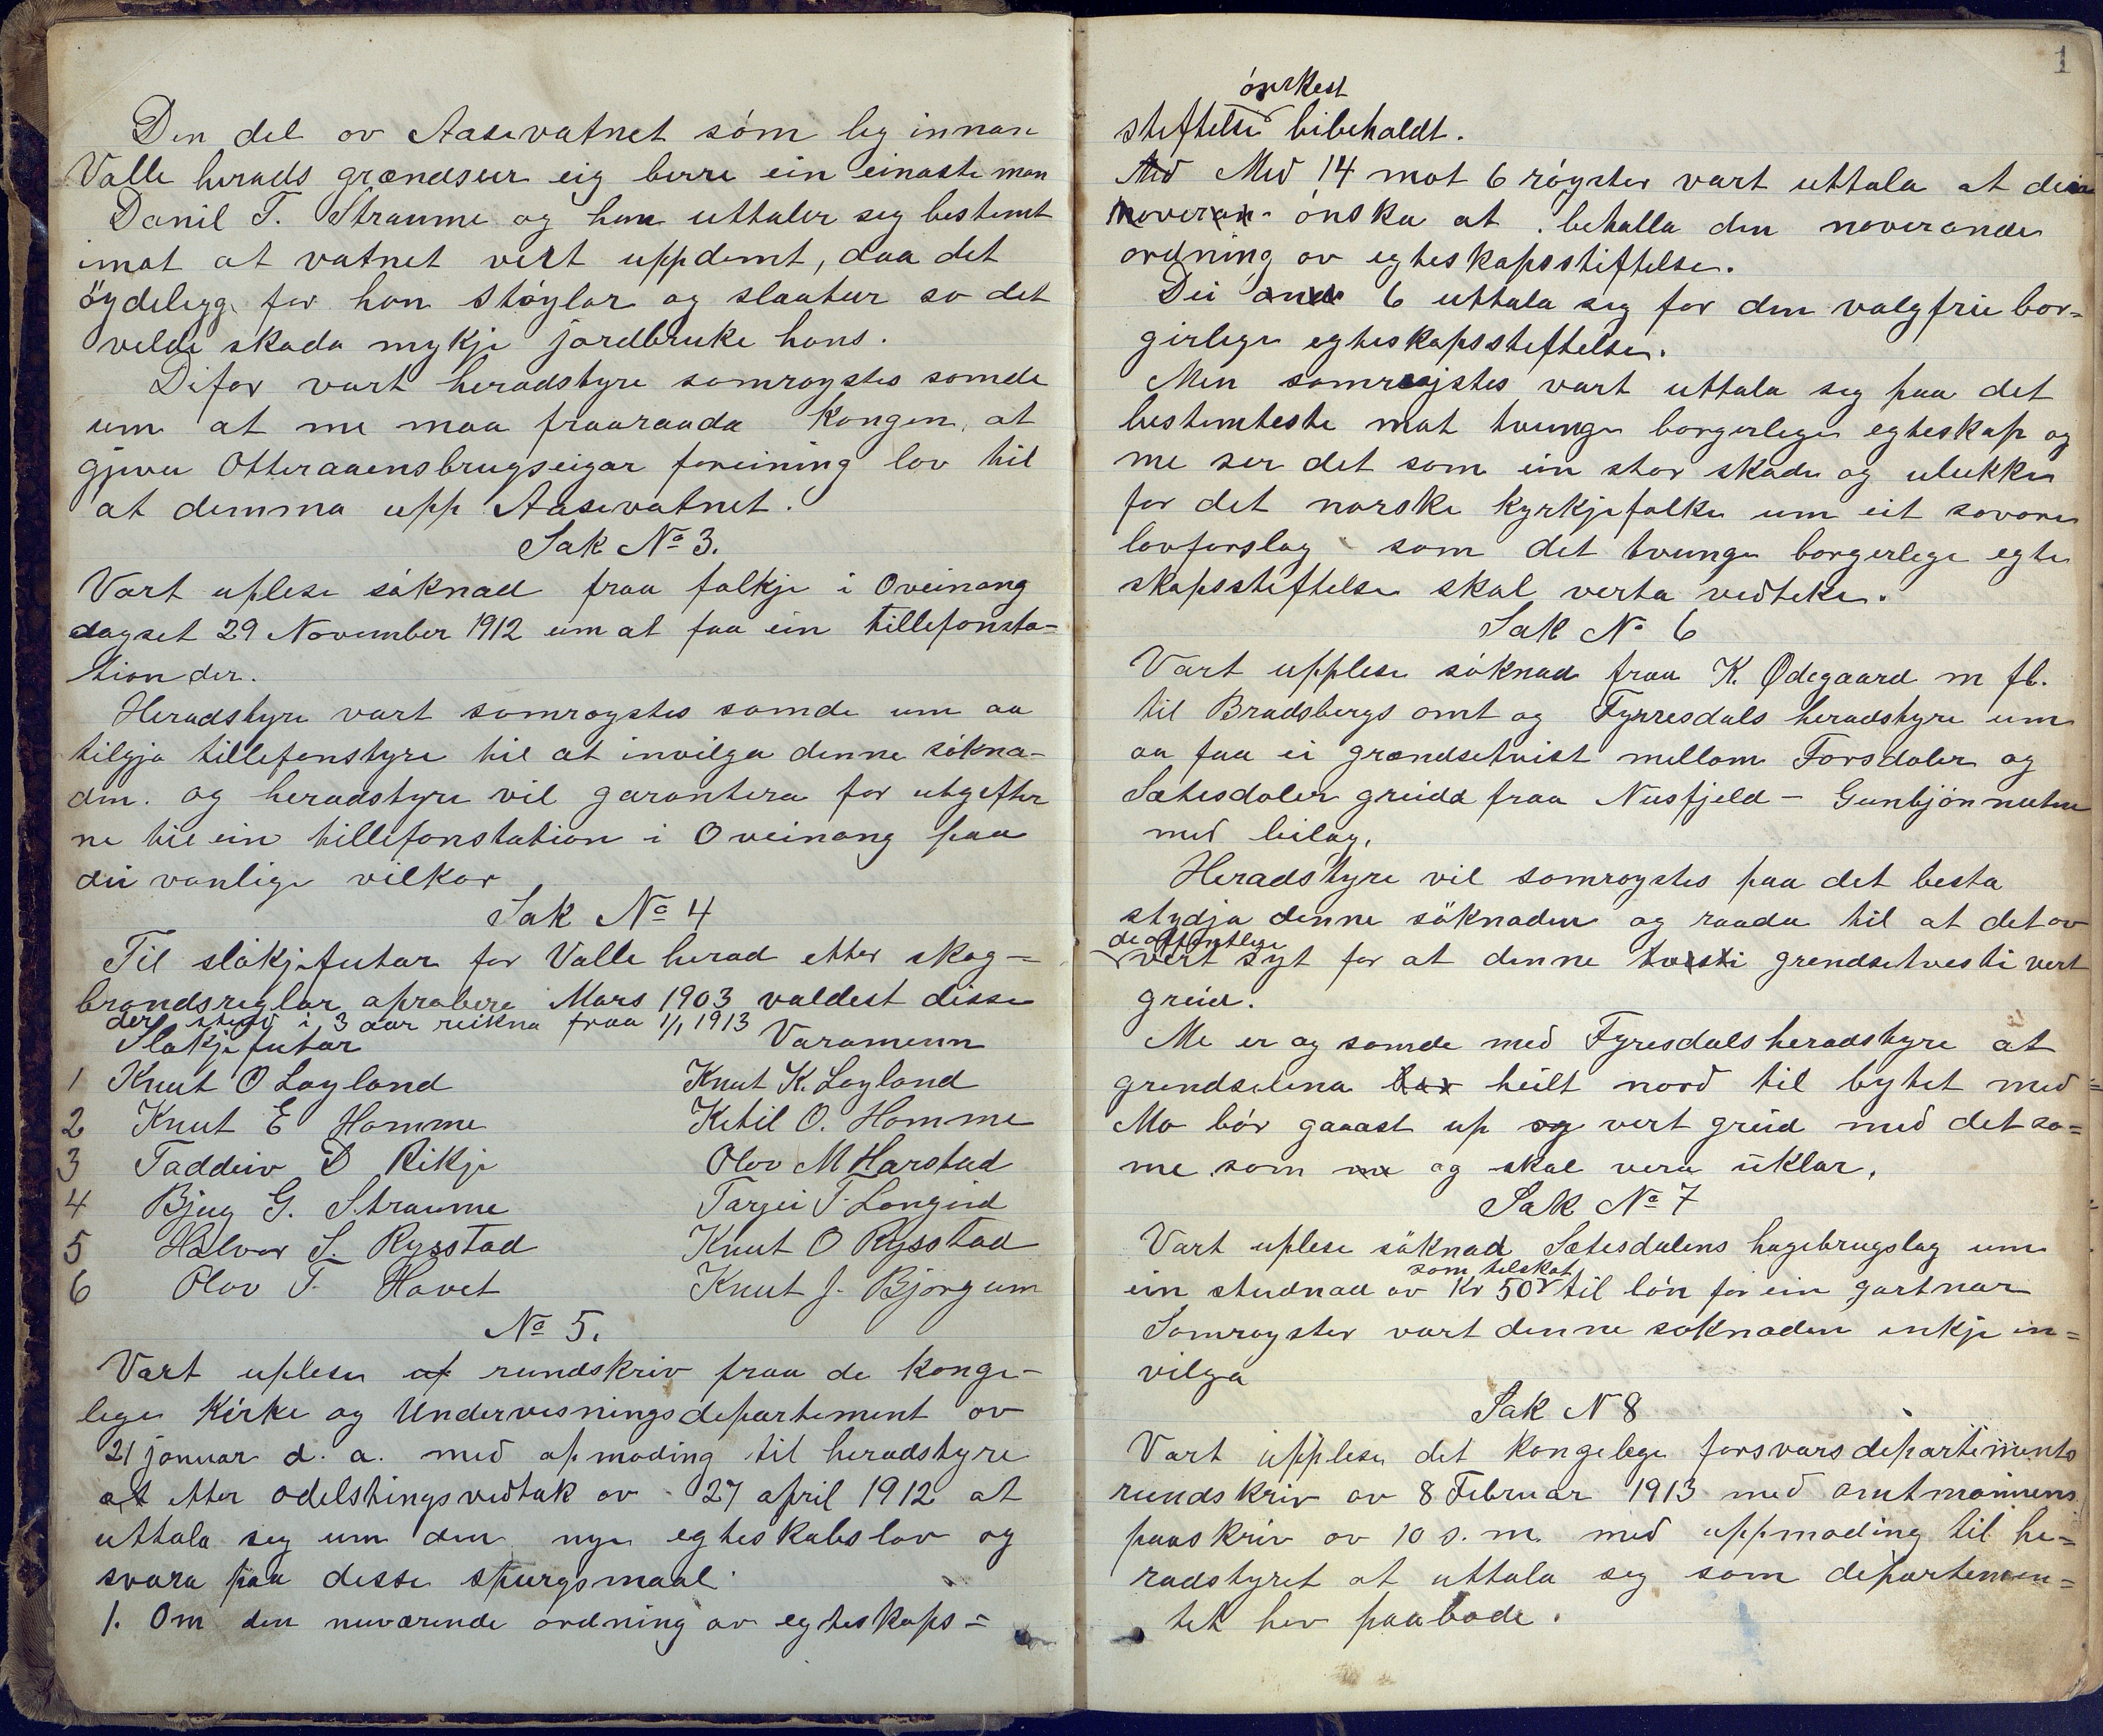 Den del ov Aasevatnet som leg innan
Valle herads grændser eig berre ein einaste man
Danil T. Straume og han uttaler seg bestemt
imot at vatnet vert uppdemt, daa det
öydelegg for han Stöylar og slaatur so det
vilde skada mykje jordbruke hans.
Difor vart heradstyre samrøystes samde
um at me maa fraaraada Kongen, at
gjeva Otteraaens brugseigar foreining lov til
at demma upp Aasevatnet.
Sak No 3.
Vart uplese söknad fraa folkje i Oveinang
dagset 29 November 1912 um at faa ein tillefonsta-
tion der.
Heradstyre vart samrøystes samde um aa
tilgja tillefonstyre til at invilga denne sökna-
den. og heradstyre vil garantera for utgifter
ne til ein tillefonstation i Oveinang paa
dei vanlige vilkor
Sak No 4
Til slökjefutar for Valle herad etter skog-
brandsreglar aprobere Mars 1903 valdest disse
der i 3 aar reikna fraa 1/1 1913
Slökjefutar Varamenn
1 Knut O Løyland Knut K. Løyland
2 Knut E Homme Ketil O. Homme
3 Taddeiv D Rikje Olov M Harstad
4 Bjug G. Straume Targei T. Longeid
5 Halvor S. Rysstad Knut O Rysstad
6 Olov T. Hovet Knut J. Bjørgum
No 5.
Vart uplese af rundskriv fraa de konge-
lege Kirke og Undervisningsdepartement ov
21 januar d. a. med apmoding til heradstyre
at etter odelstingsvedtak ov 27 april 1912 at
uttala seg um den nye egteskabslov og
svara paa desse spurgsmaal
1. Om den nuværende ordning av egteskaps=
1
önskest
steftelse bibeholdt.
Med Med 14 mot 6 röyster vart uttala at dei
noveran- önska at behalla den noverande
ordning ov egteskapsstiftelse.
Dei andr 6 uttala seg for den valgfrie bor=
gerlege egteskapsstiftelse.
Men samrøystes vart uttala seg paa det
bestemteste mot tvungen borgerlege egteskap og
me ser det som ein stor skade og ulukke
for det norske kyrkjefolke um eit sovore
lovforslag som det tvunge borgerlege egte
skapsstiftelse skal verta vedteke.
Sak No 6
Vart upplese söknad fraa K. Ødegaard m fl.
til Bradsbergs amt og Fyrresdals heradstyre um
aa faa ei grændsetvist mellom Forsdalen og
Sætesdalen greidd fraa Nusfjeld - Gunbjörnnuten
med beilag,
Heradstyre vil samrøystes paa det besta
stydja denne söknaden og raada til at det ov
de offentlege
vert syt for at denne tvisti grendsetvesti vert
greid.
Me er og samde med Fyresdals heradstyre at
grendselina bør heilt nord til bytet med=
Mo bör gaaast up og vert greid med det sa=
me som me og skal vera uklar,
Sak No 7
Vart uplese söknad Sætesdalens hagebrugslag um
som telskot
ein studnad ov Kr 50 til lön for ein gartnar
Samrøyster vart denne söknaden inkje in=
vilga
Sak N 8
Vart upplese det kongelege forsvarsdepartiments
rundskriv ov 8 Februar 1913 med amtmannens
paaskriv ov 10 s. m. med uppmoding til he=
radstyret at uttala seg som departemen=
tet hev paabode.